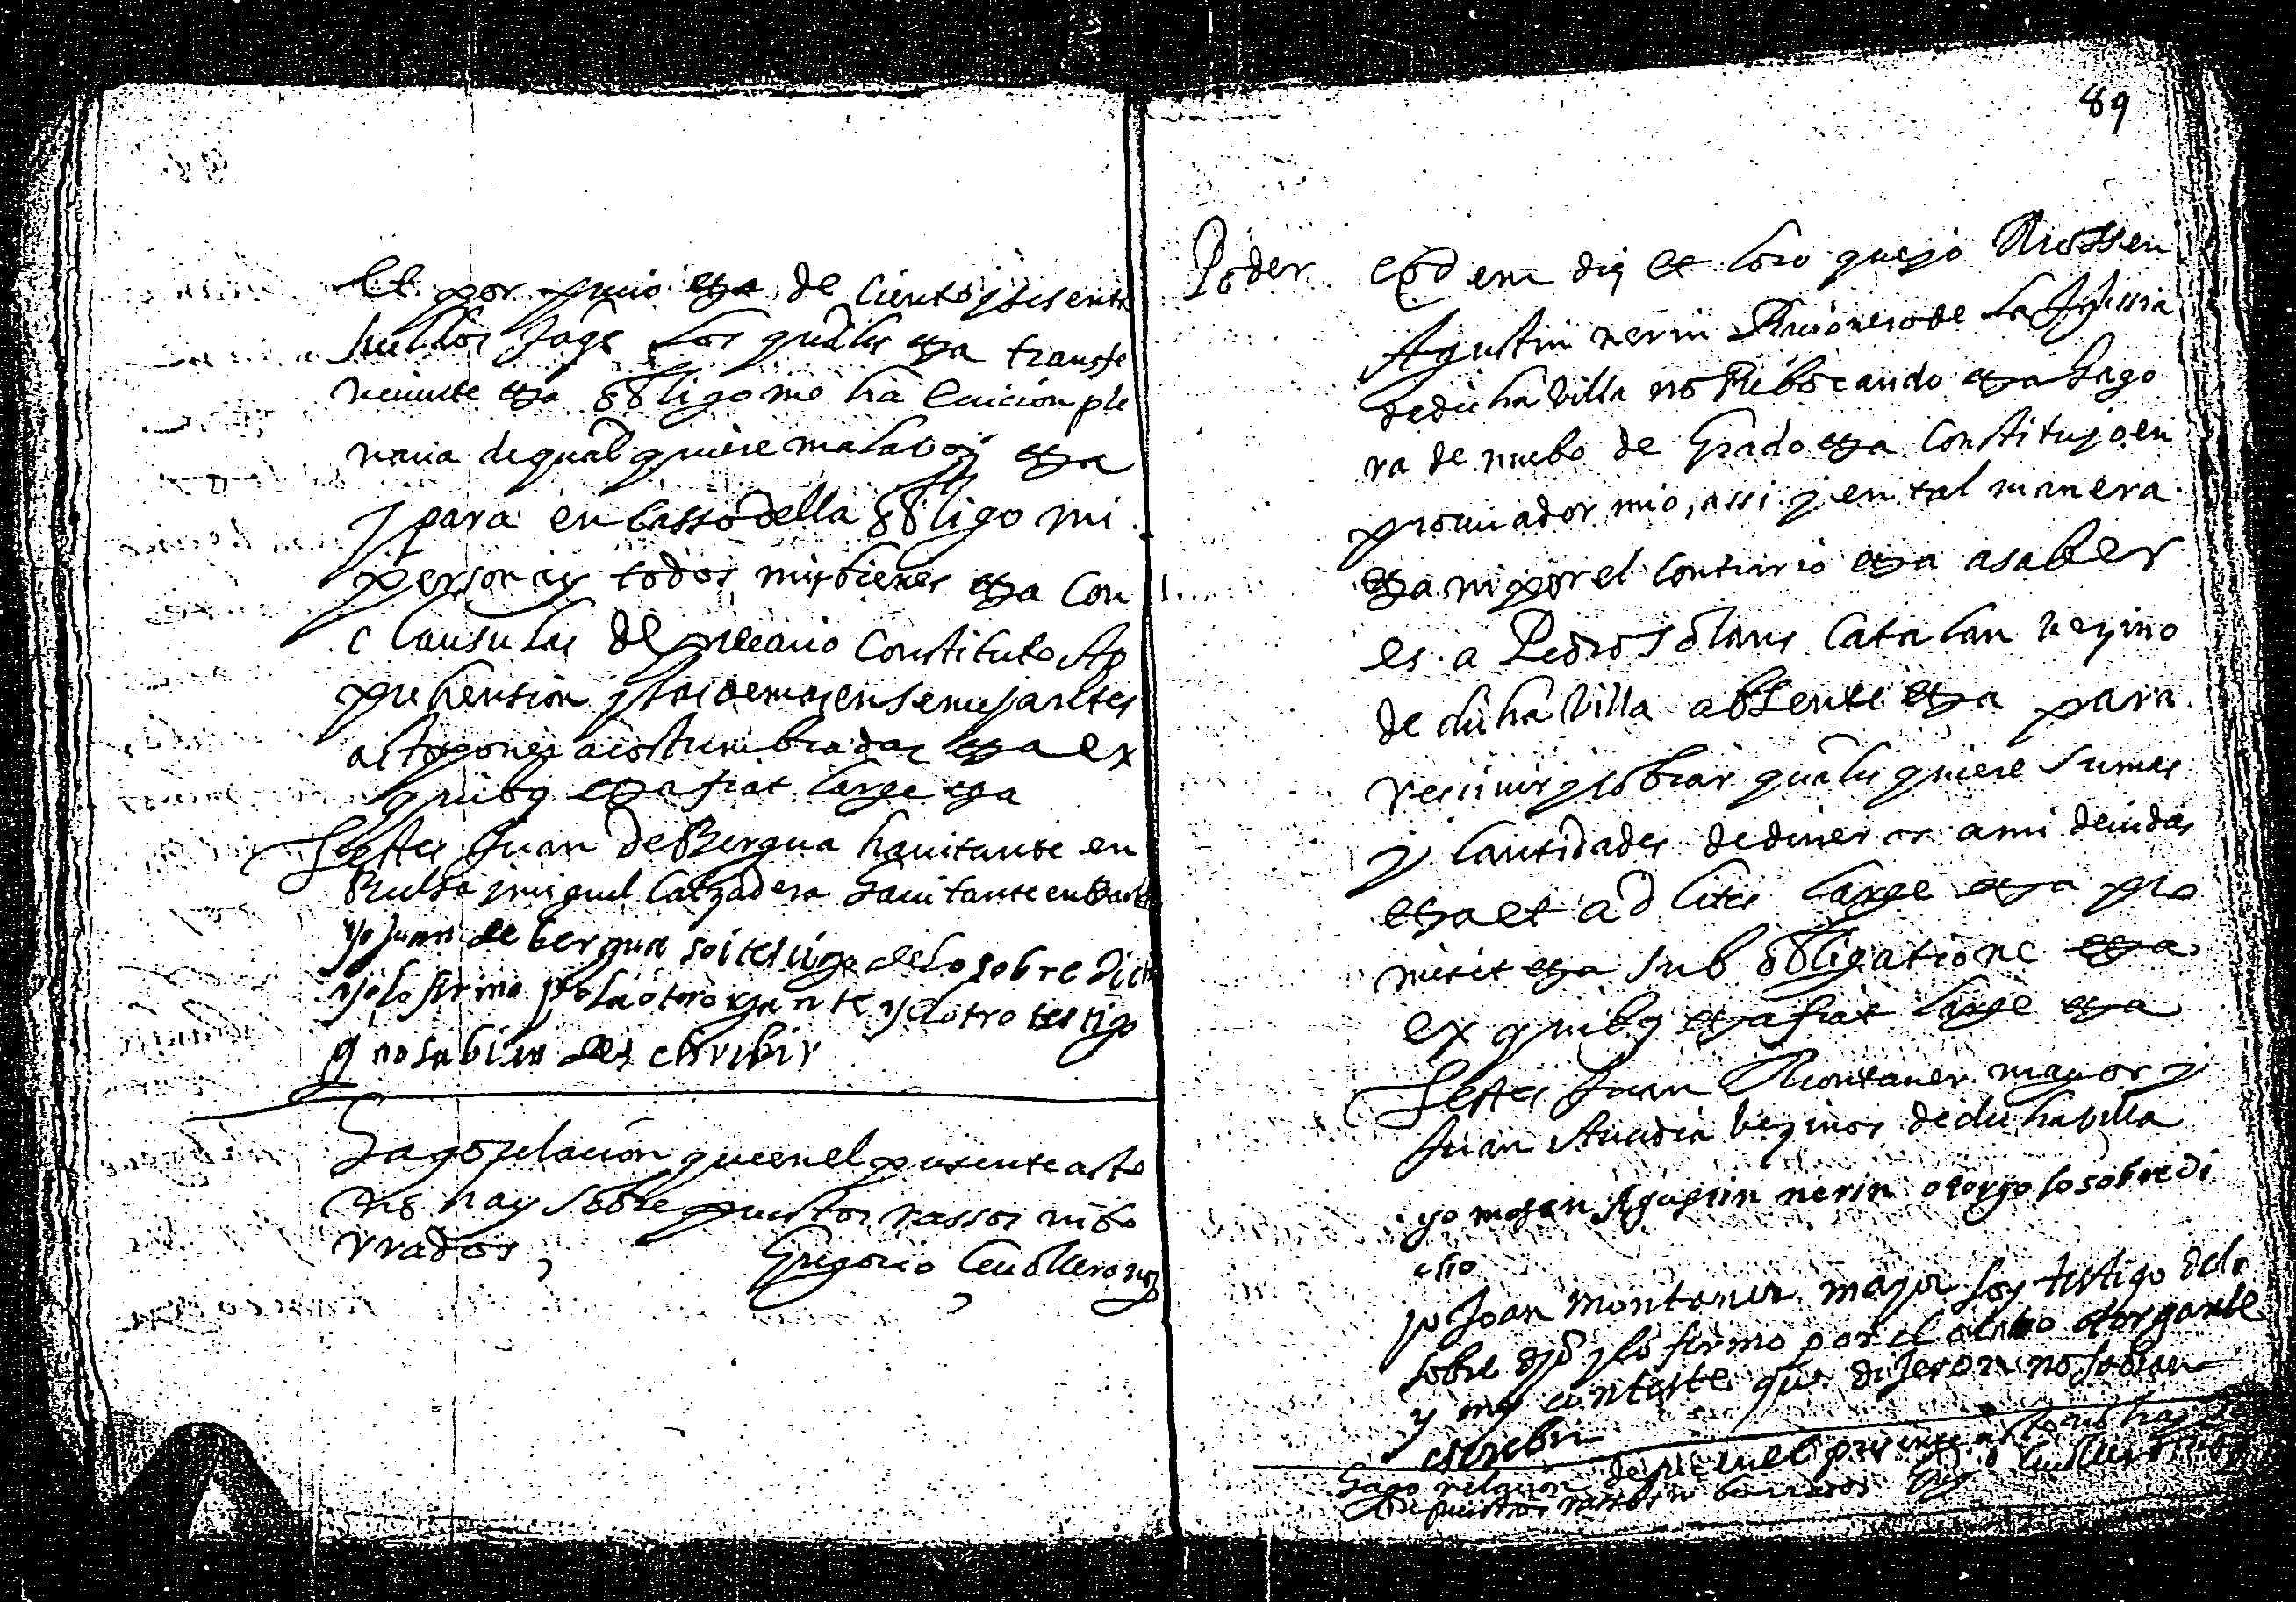 et por precio etza de ciento y sesenta
sueldos Jaqs los quales etza transfe
riente etza obligome ha euicion ple
naria de qual quiere mala boz etza
y para en casso della obligo mi
persona y todos mis bienes etza con
clausulas de precario constituto Ap
prehension y las demas en semejantes
actos poner acostumbradas etza ex
quibus etza fiat large etza
Testes Juan de Bergua hauitante en
y miguel Calzadera hauitante en
yo Juan de bergua soi testigo de lo sobre dicho
y lo firmo por la otorgante y el otro testigo
q no sabian de escribir
Hago relacion que en el presente acto
no hay sobre puestos rassos ni bo
rrados, Gregorio not
89
Poder eodem die et loco que yo Mossen
Agustin nerin Racionero de la Iglessia
de dicha villa no Rebocando etza hago
ra de nuebo de Grado etza constituyo en
procurador mio, assi y en tal manera
etza ni por el contrario etza a saber
es a Pedro Solans Catalan vezino
de dicha villa absente etza para
reciuir y cobrar quales quiere sumas
y cantidades de dineros a mi deuidas
etza et ad lites large etza pro
misit etza sub obligatione etza
ex quibus etza fiat large etza
Testes Juan Montaner mayor y
Juan vezinos de dicha villa
yo mosen Agustin nerin otorgo lo sobredi
cho
yo Joan montaner mayor soy testigo de lo
sobre djo y lo firmo por el otorgante
y my conteste que dijeron no sabian
escrebir
Hago relacion de que en el presente acto no hay so
bre puestos rassos ni borrados Greg.o not